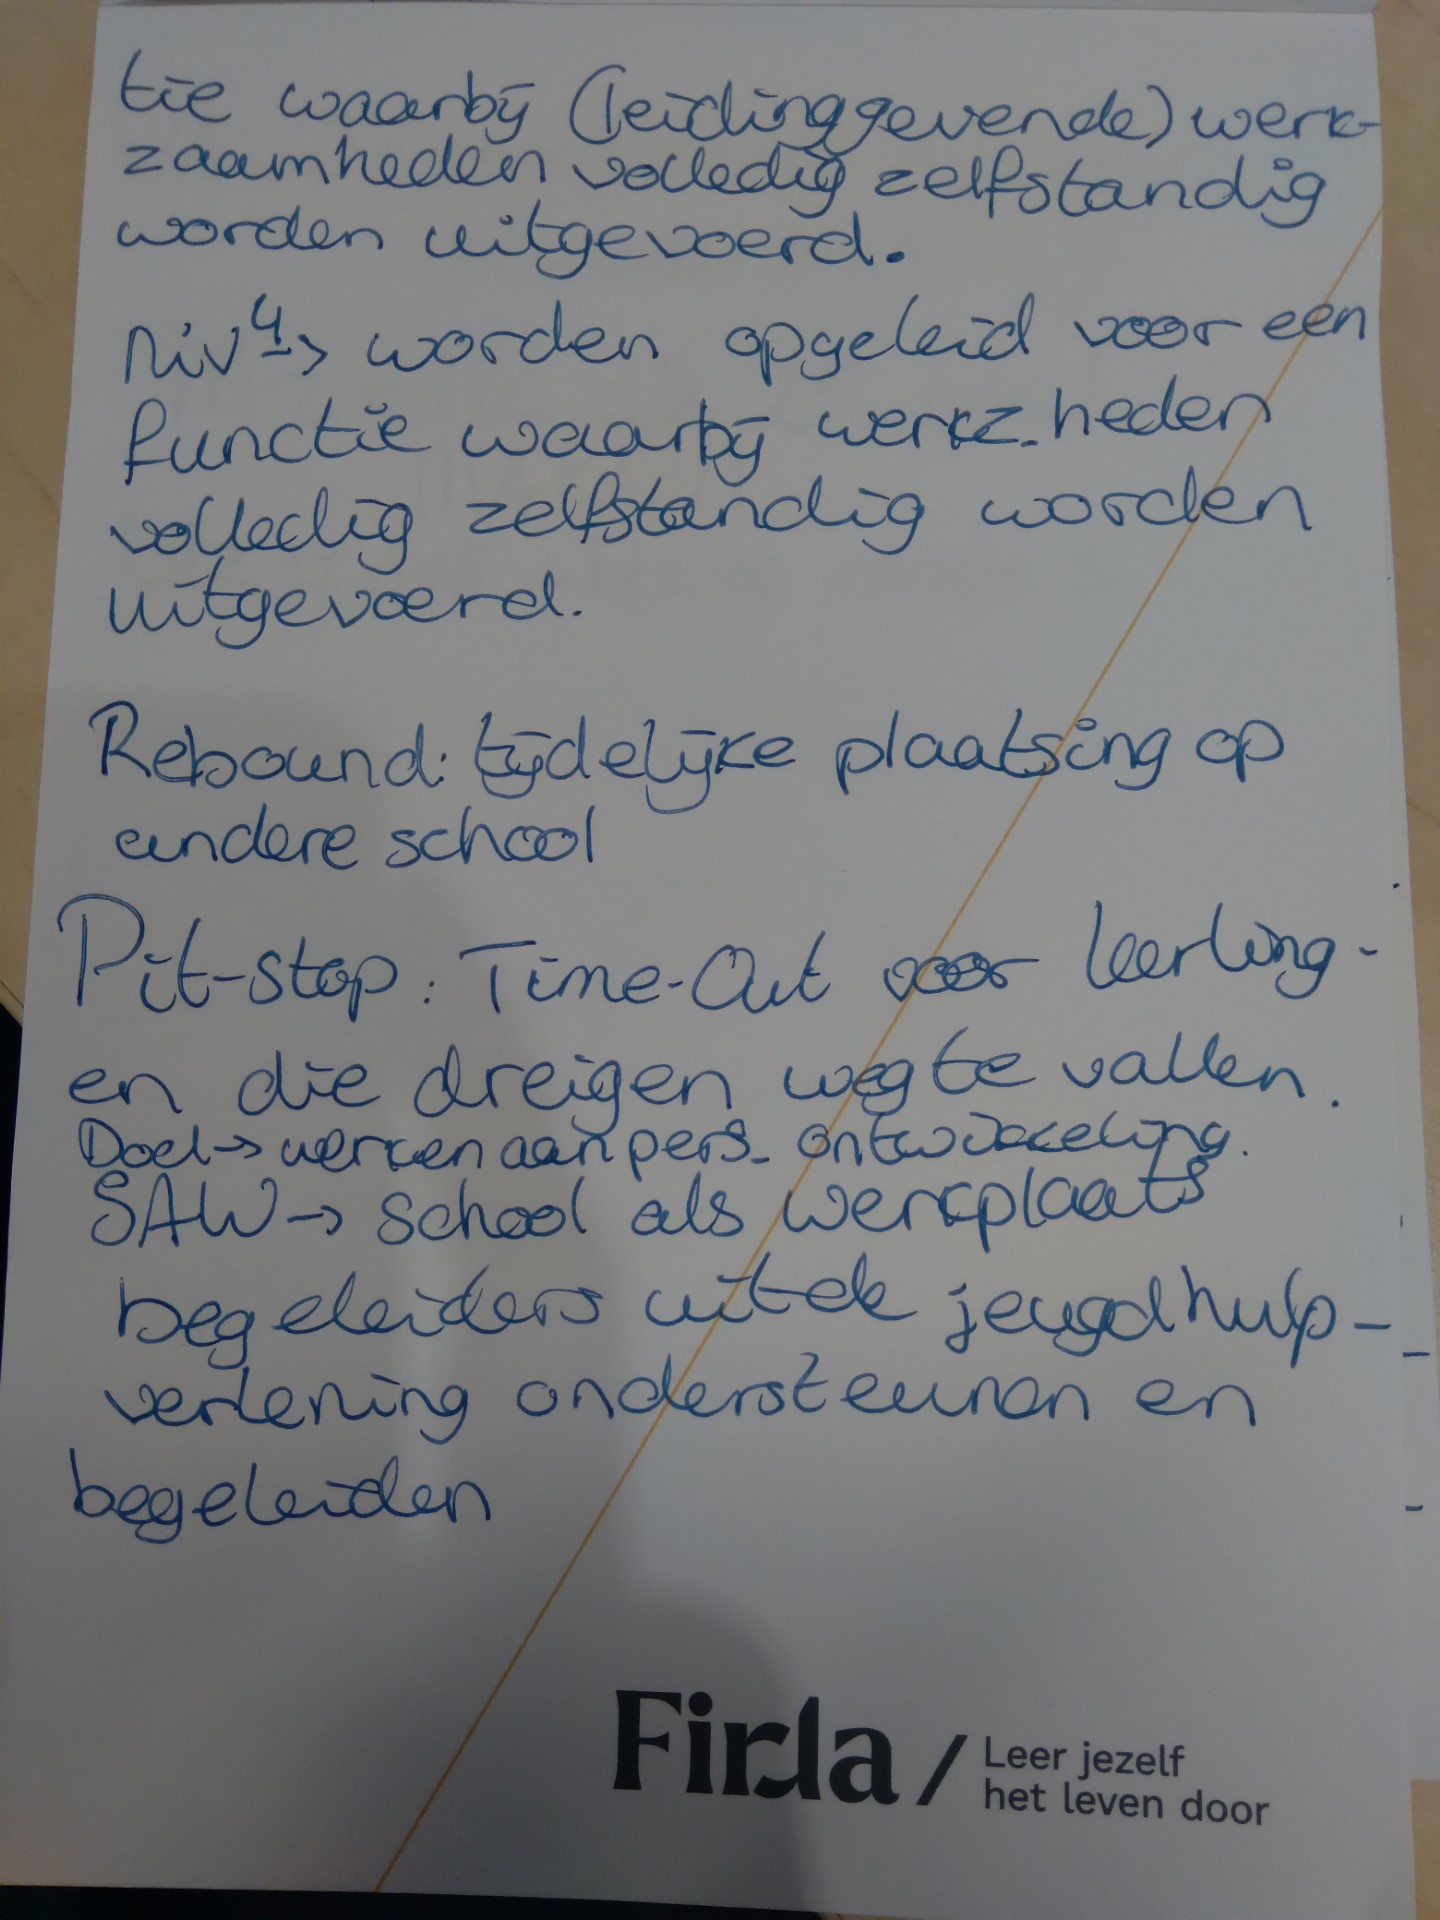 tie waarbij (leidinggevende) werk-
zaamheden volledig zelfstandig
worden uitgevoerd.
Niv 4 -> worden opgeleid voor een
functie waarbij werkz.heden
volledig zelfstandig worden
uitgevoerd.
Rebound: tijdelijke plaatsing op
andere school
Pit-stop: Time-Out voor leerling-
en die dreigen weg te vallen.
Doel -> werken aan pers. ontwikkeling.
SAW -> School als werkplaats
begeleiders uit de jeugdhulp-
verlening ondersteunen en
begeleiden
Firda / Leer jezelf
het leven door